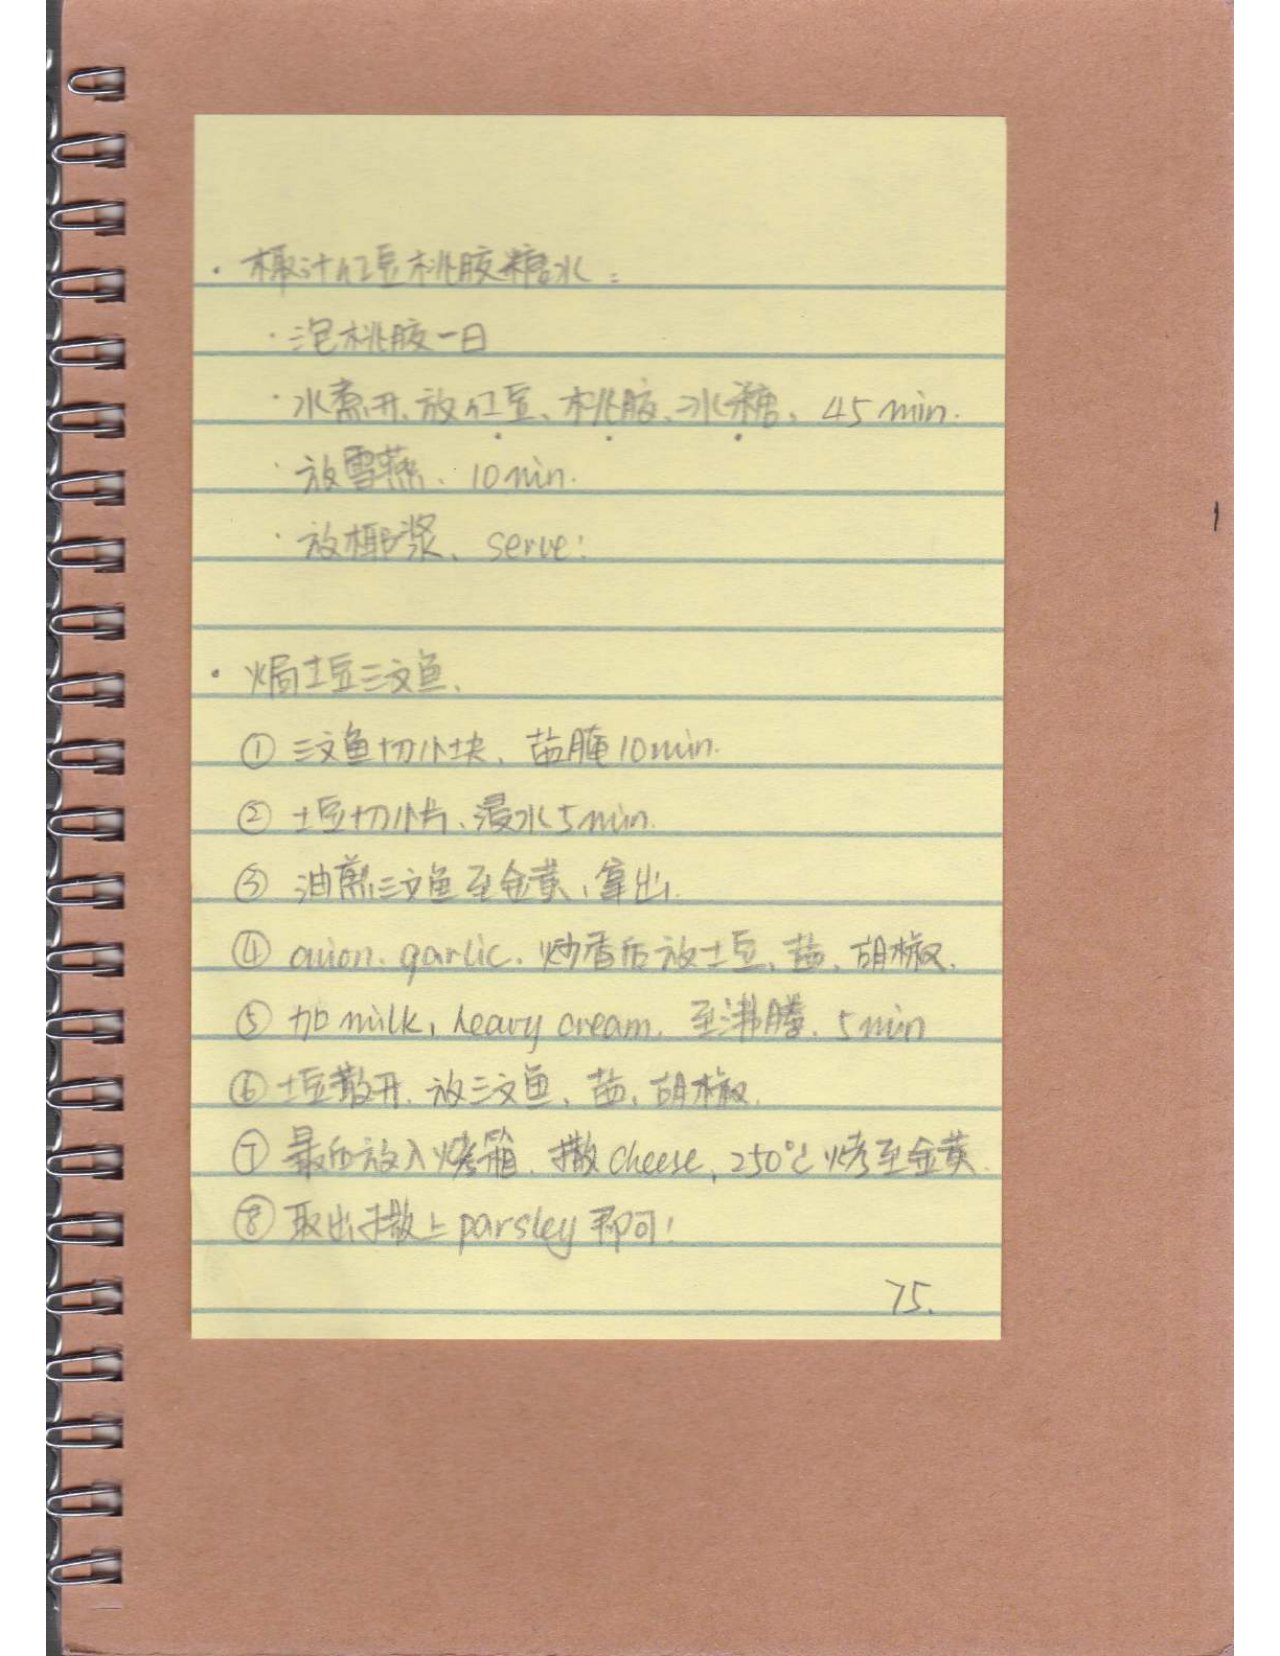 · 椰汁红豆桃胶糖水：
· 泡桃胶一日
· 水煮开、放红豆、桃胶、冰糖、45 min.
· 放雪燕、10 min.
· 放椰浆、serve!
· 焗土豆三文鱼、
① 三文鱼切小块、盐腌10min.
② 土豆切小片、浸水5min.
③ 油煎三文鱼至金黄、拿出.
④ onion. garlic. 炒香后放土豆、盐、胡椒.
⑤ 加milk, heavy cream. 至沸腾. 5min
⑥ 土豆散开. 放三文鱼、盐、胡椒.
⑦ 最后放入烤箱. 撒cheese, 250℃烤至金黄.
⑧ 取出撒上parsley即可!
75.